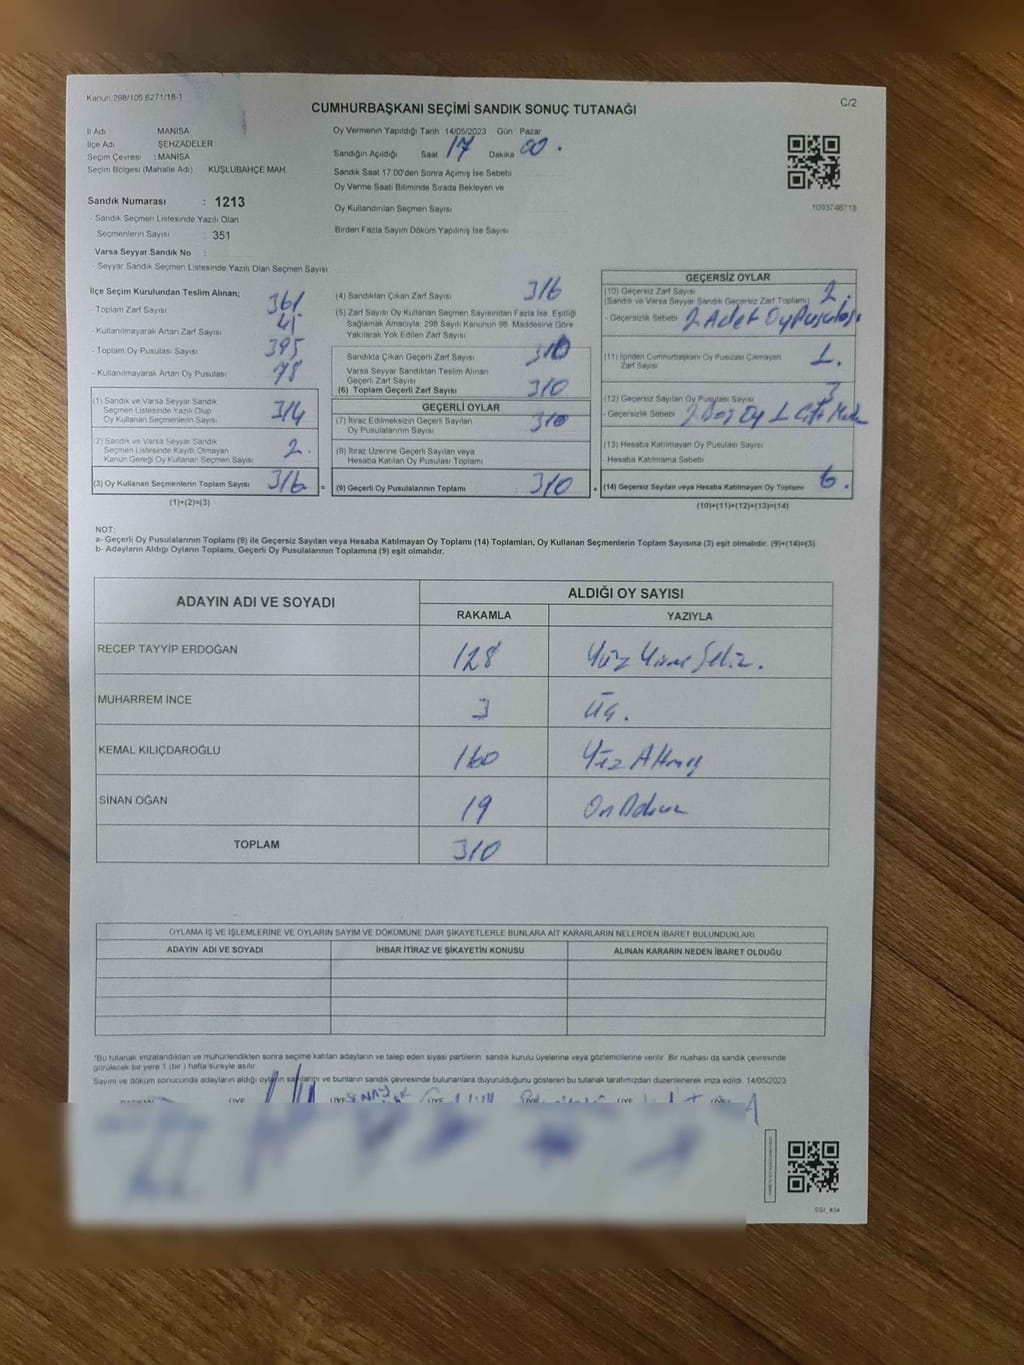 Kanun 298/105 6271/18-1
C/2
CUMHURBAŞKANI SEÇİMİ SANDIK SONUÇ TUTANAĞI
İl Adı MANİSA
İlçe Adı ŞEHZADELER
Seçim Çevresi : MANİSA
Seçim Bölgesi (Mahalle Adı) KUŞLUBAHÇE MAH
Sandık Numarası : 1213
- Sandık Seçmen Listesinde Yazılı Olan
Seçmenlerin Sayısı : 351
Varsa Seyyar Sandık No :
- Seyyar Sandık Seçmen Listesinde Yazılı Olan Seçmen Sayısı
Oy Vermenin Yapıldığı Tarih 14/05/2023 Gün : Pazar
Sandığın Açıldığı Saat 17 Dakika 00.
Sandık Saat 17 00'den Sonra Açılmış İse Sebebi
Oy Verme Saati Bitiminde Sırada Bekleyen ve
Oy Kullandırılan Seçmen Sayısı
Birden Fazla Sayım Döküm Yapılmış İse Sayısı
1093748718
İlçe Seçim Kurulundan Teslim Alınan;
- Toplam Zarf Sayısı 361
- Kullanılmayarak Artan Zarf Sayısı 45
- Toplam Oy Pusulası Sayısı 395
- Kullanılmayarak Artan Oy Pusulası 78
(1) Sandık ve Varsa Seyyar Sandık
Seçmen Listesinde Yazılı Olup
Oy Kullanan Seçmenlerin Sayısı 314
(2) Sandık ve Varsa Seyyar Sandık
Seçmen Listesinde Kayıtlı Olmayan
Kanun Gereği Oy Kullanan Seçmen Sayısı 2.
(3) Oy Kullanan Seçmenlerin Toplam Sayısı 316 =
(1)+(2)=(3)
(4) Sandıktan Çıkan Zarf Sayısı 316
(5) Zarf Sayısı Oy Kullanan Seçmen Sayısından Fazla İse. Eşitliği
Sağlamak Amacıyla, 298 Sayılı Kanunun 98. Maddesine Göre
Yakılarak Yok Edilen Zarf Sayısı
Sandıkta Çıkan Geçerli Zarf Sayısı 310
Varsa Seyyar Sandıktan Teslim Alınan
Geçerli Zarf Sayısı
(6) Toplam Geçerli Zarf Sayısı 310
GEÇERLİ OYLAR
(7) İtiraz Edilmeksizin Geçerli Sayılan
Oy Pusulalarının Sayısı 310
(8) İtiraz Üzerine Geçerli Sayılan veya
Hesaba Katılan Oy Pusulası Toplamı
(9) Geçerli Oy Pusulalarının Toplamı 310 +
GEÇERSİZ OYLAR
(10) Geçersiz Zarf Sayısı
(Sandık ve Varsa Seyyar Sandık Geçersiz Zarf Toplamı) 2.
- Geçersizlik Sebebi 2 Adet Oy Pusulası.
(11) İçinden Cumhurbaşkanı Oy Pusulası Çıkmayan
Zarf Sayısı 1.
(12) Geçersiz Sayılan Oy Pusulası Sayısı 3
- Geçersizlik Sebebi 2 Boş Oy 1 Çift
(13) Hesaba Katılmayan Oy Pusulası Sayısı
- Hesaba Katılmama Sebebi
(14) Geçersiz Sayılan veya Hesaba Katılmayan Oy Toplamı 6.
(10)+(11)+(12)+(13)=(14)
NOT:
a- Geçerli Oy Pusulalarının Toplamı (9) ile Geçersiz Sayılan veya Hesaba Katılmayan Oy Toplamı (14) Toplamları, Oy Kullanan Seçmenlerin Toplam Sayısına (3) eşit olmalıdır. (9)+(14)=(3)
b- Adayların Aldığı Oyların Toplamı, Geçerli Oy Pusulalarının Toplamına (9) eşit olmalıdır.
ADAYIN ADI VE SOYADI
ALDIĞI OY SAYISI
RAKAMLA YAZIYLA
RECEP TAYYİP ERDOĞAN 128 Yüz Yirmi Sekiz.
MUHARREM İNCE 3 Üç.
KEMAL KILIÇDAROĞLU 160 Yüz Altmış
SİNAN OĞAN 19 On Dokuz
TOPLAM 310
OYLAMA İŞ VE İŞLEMLERİNE VE OYLARIN SAYIM VE DÖKÜMÜNE DAİR ŞİKAYETLERLE BUNLARA AİT KARARLARIN NELERDEN İBARET BULUNDUKLARI
ADAYIN ADI VE SOYADI İHBAR İTİRAZ VE ŞİKAYETİN KONUSU ALINAN KARARIN NEDEN İBARET OLDUĞU
*Bu tutanak imzalandıktan ve mühürlendikten sonra seçime katılan adayların ve talep eden siyasi partilerin sandık kurulu üyelerine veya gözlemcilerine verilir. Bir nüshası da sandık çevresinde
görülecek bir yere 1 (bir) hafta süreyle asılır.
Sayım ve döküm sonucunda adayların aldığı oyların sayılarını ve bunların sandık çevresinde bulunanlara duyurulduğunu gösteren bu tutanak tarafımızdan düzenlenerek imza edildi. 14/05/2023
SGI_404